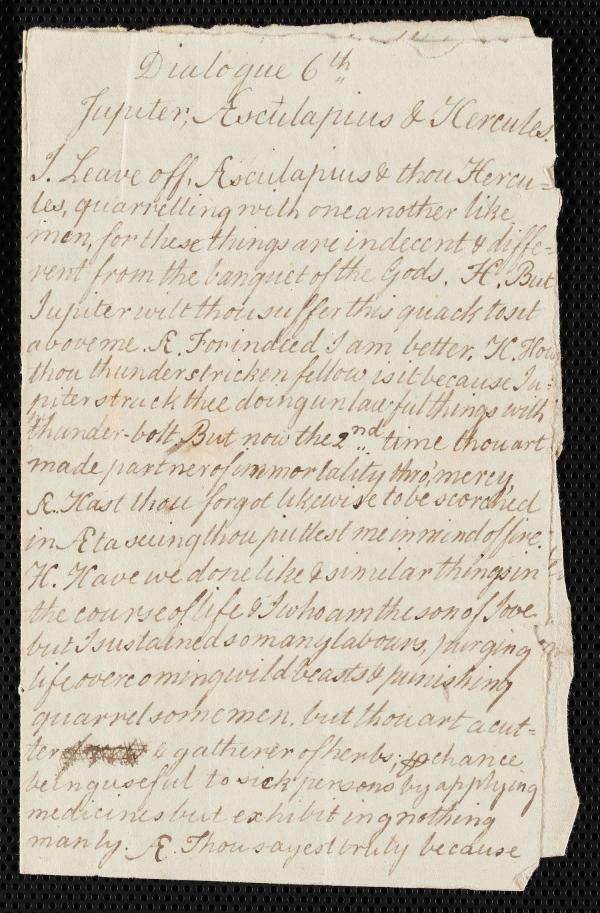 Dialogue 6th
Jupiter, Æsculapius & Hercules.
J. Leave off, Æsculapius & thou Hercu=
les, quarrelling with one another like
men, for these things are indecent & diffe=
rent from the banquet of the Gods. H. But
Jupiter wilt thou suffer this quack to sit
above me. Æ. For indeed I am better. H. How
thou thunderstricken fellow is it because Ju=
piter struck thee doing unlawful things with
thunder-bolt. But now the 2nd time thou art
made partner of immortality thro' mercy.
Æ. Hast thou forgot likewise to be scorched
in Æta seeing thou puttest me in mind of fire.
H. Have we done like & similar things in
the course of life & I who am the son of Jove
but I sustained so many labours, purging
life overcoming wild beasts & punishing
quarrelsome men, but thou art a cut=
ter & gatherer of herbs; perchance
being useful to sick persons by applying
medicines but exhibiting nothing
manly. Æ. Thou sayest truly because